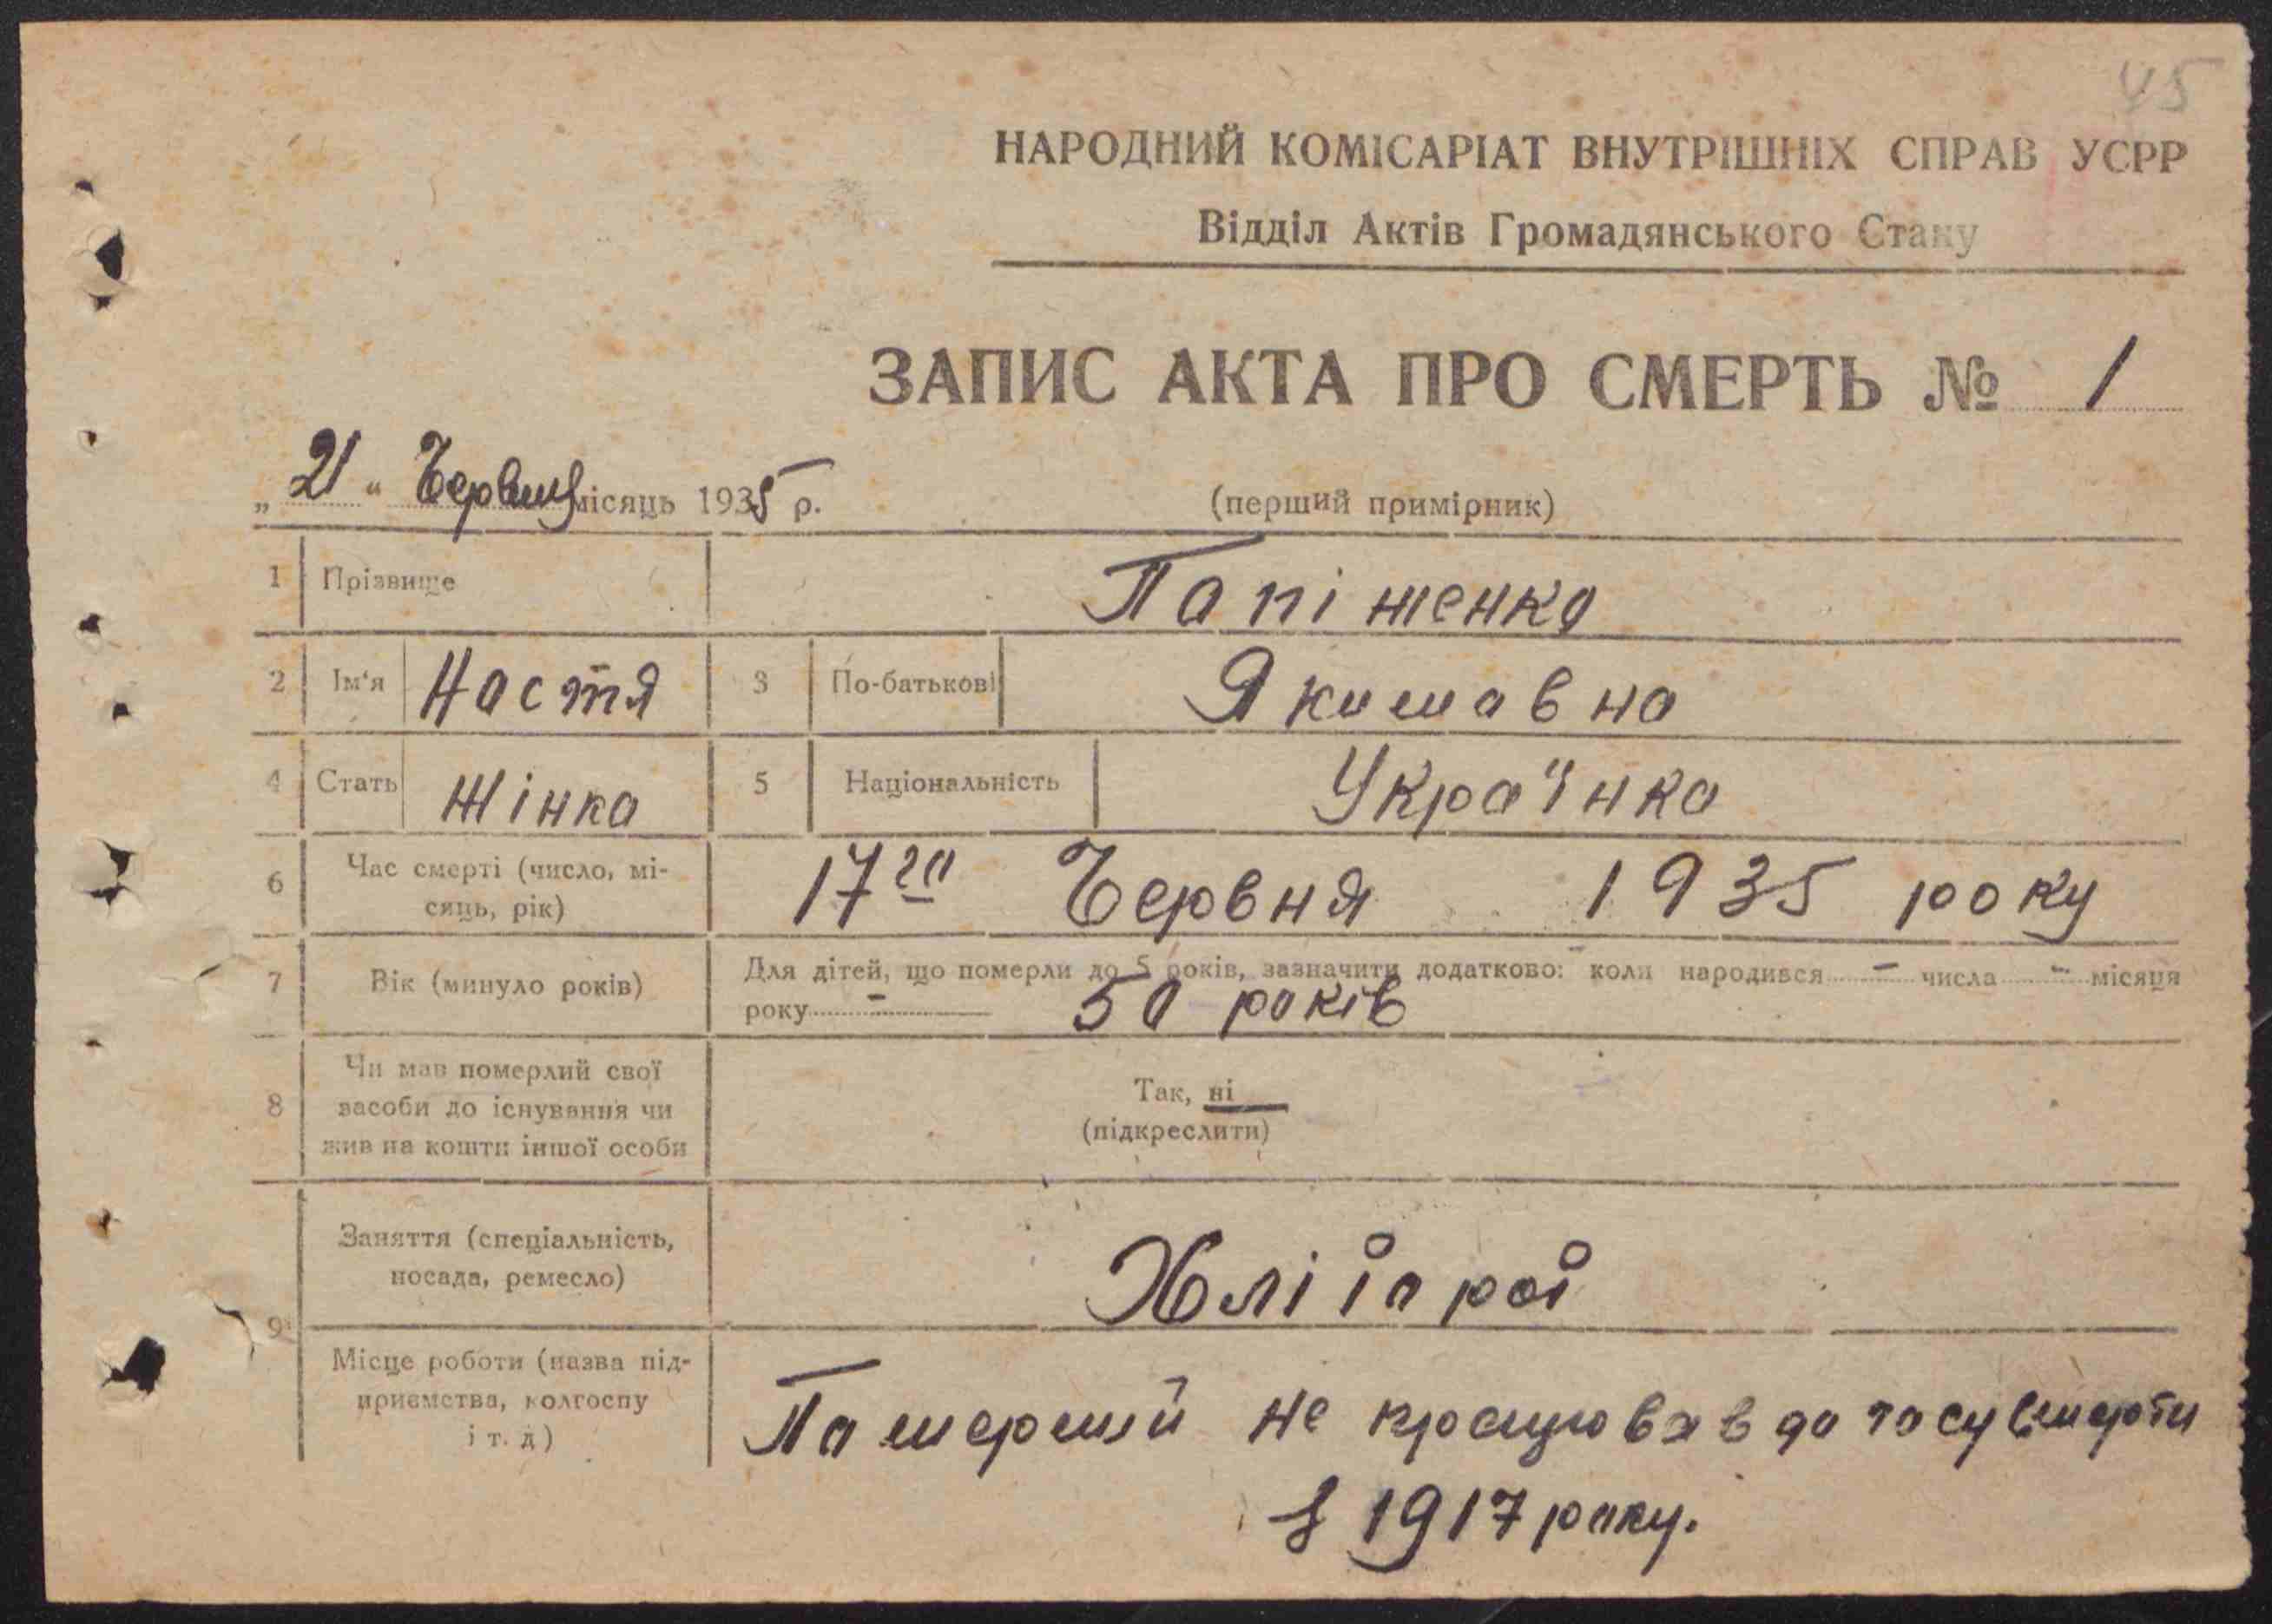 45
НАРОДНИЙ КОМІСАРІАТ ВНУТРІШНІХ СПРАВ УСРР
Відділ Актів Громадянського Стану
ЗАПИС АКТА ПРО СМЕРТЬ № 1
„21“ Червня місяць 1935 р. (перший примірник)
1 Прізвище Папіженко
2 Ім'я Настя 3 По-батькові Якимавна
4 Стать Жінка 5 Національність Українка
6 Час смерті (число, мі-
сяць, рік) 17го Червня 1935 року
7 Вік (минуло років) Для дітей, що померли до 5 років, зазначити додатково: коли народився - числа - місяця
року - 50 років
8 Чи мав померлий свої
засоби до існування чи
жив на кошти іншої особи
Так, ні
(підкреслити)
9 Заняття (спеціальність,
посада, ремесло)
Хлібороб
Місце роботи (назва під-
приємства, колгоспу
і т. д)
Памерший не працював до часу смерти
з 1917 року.